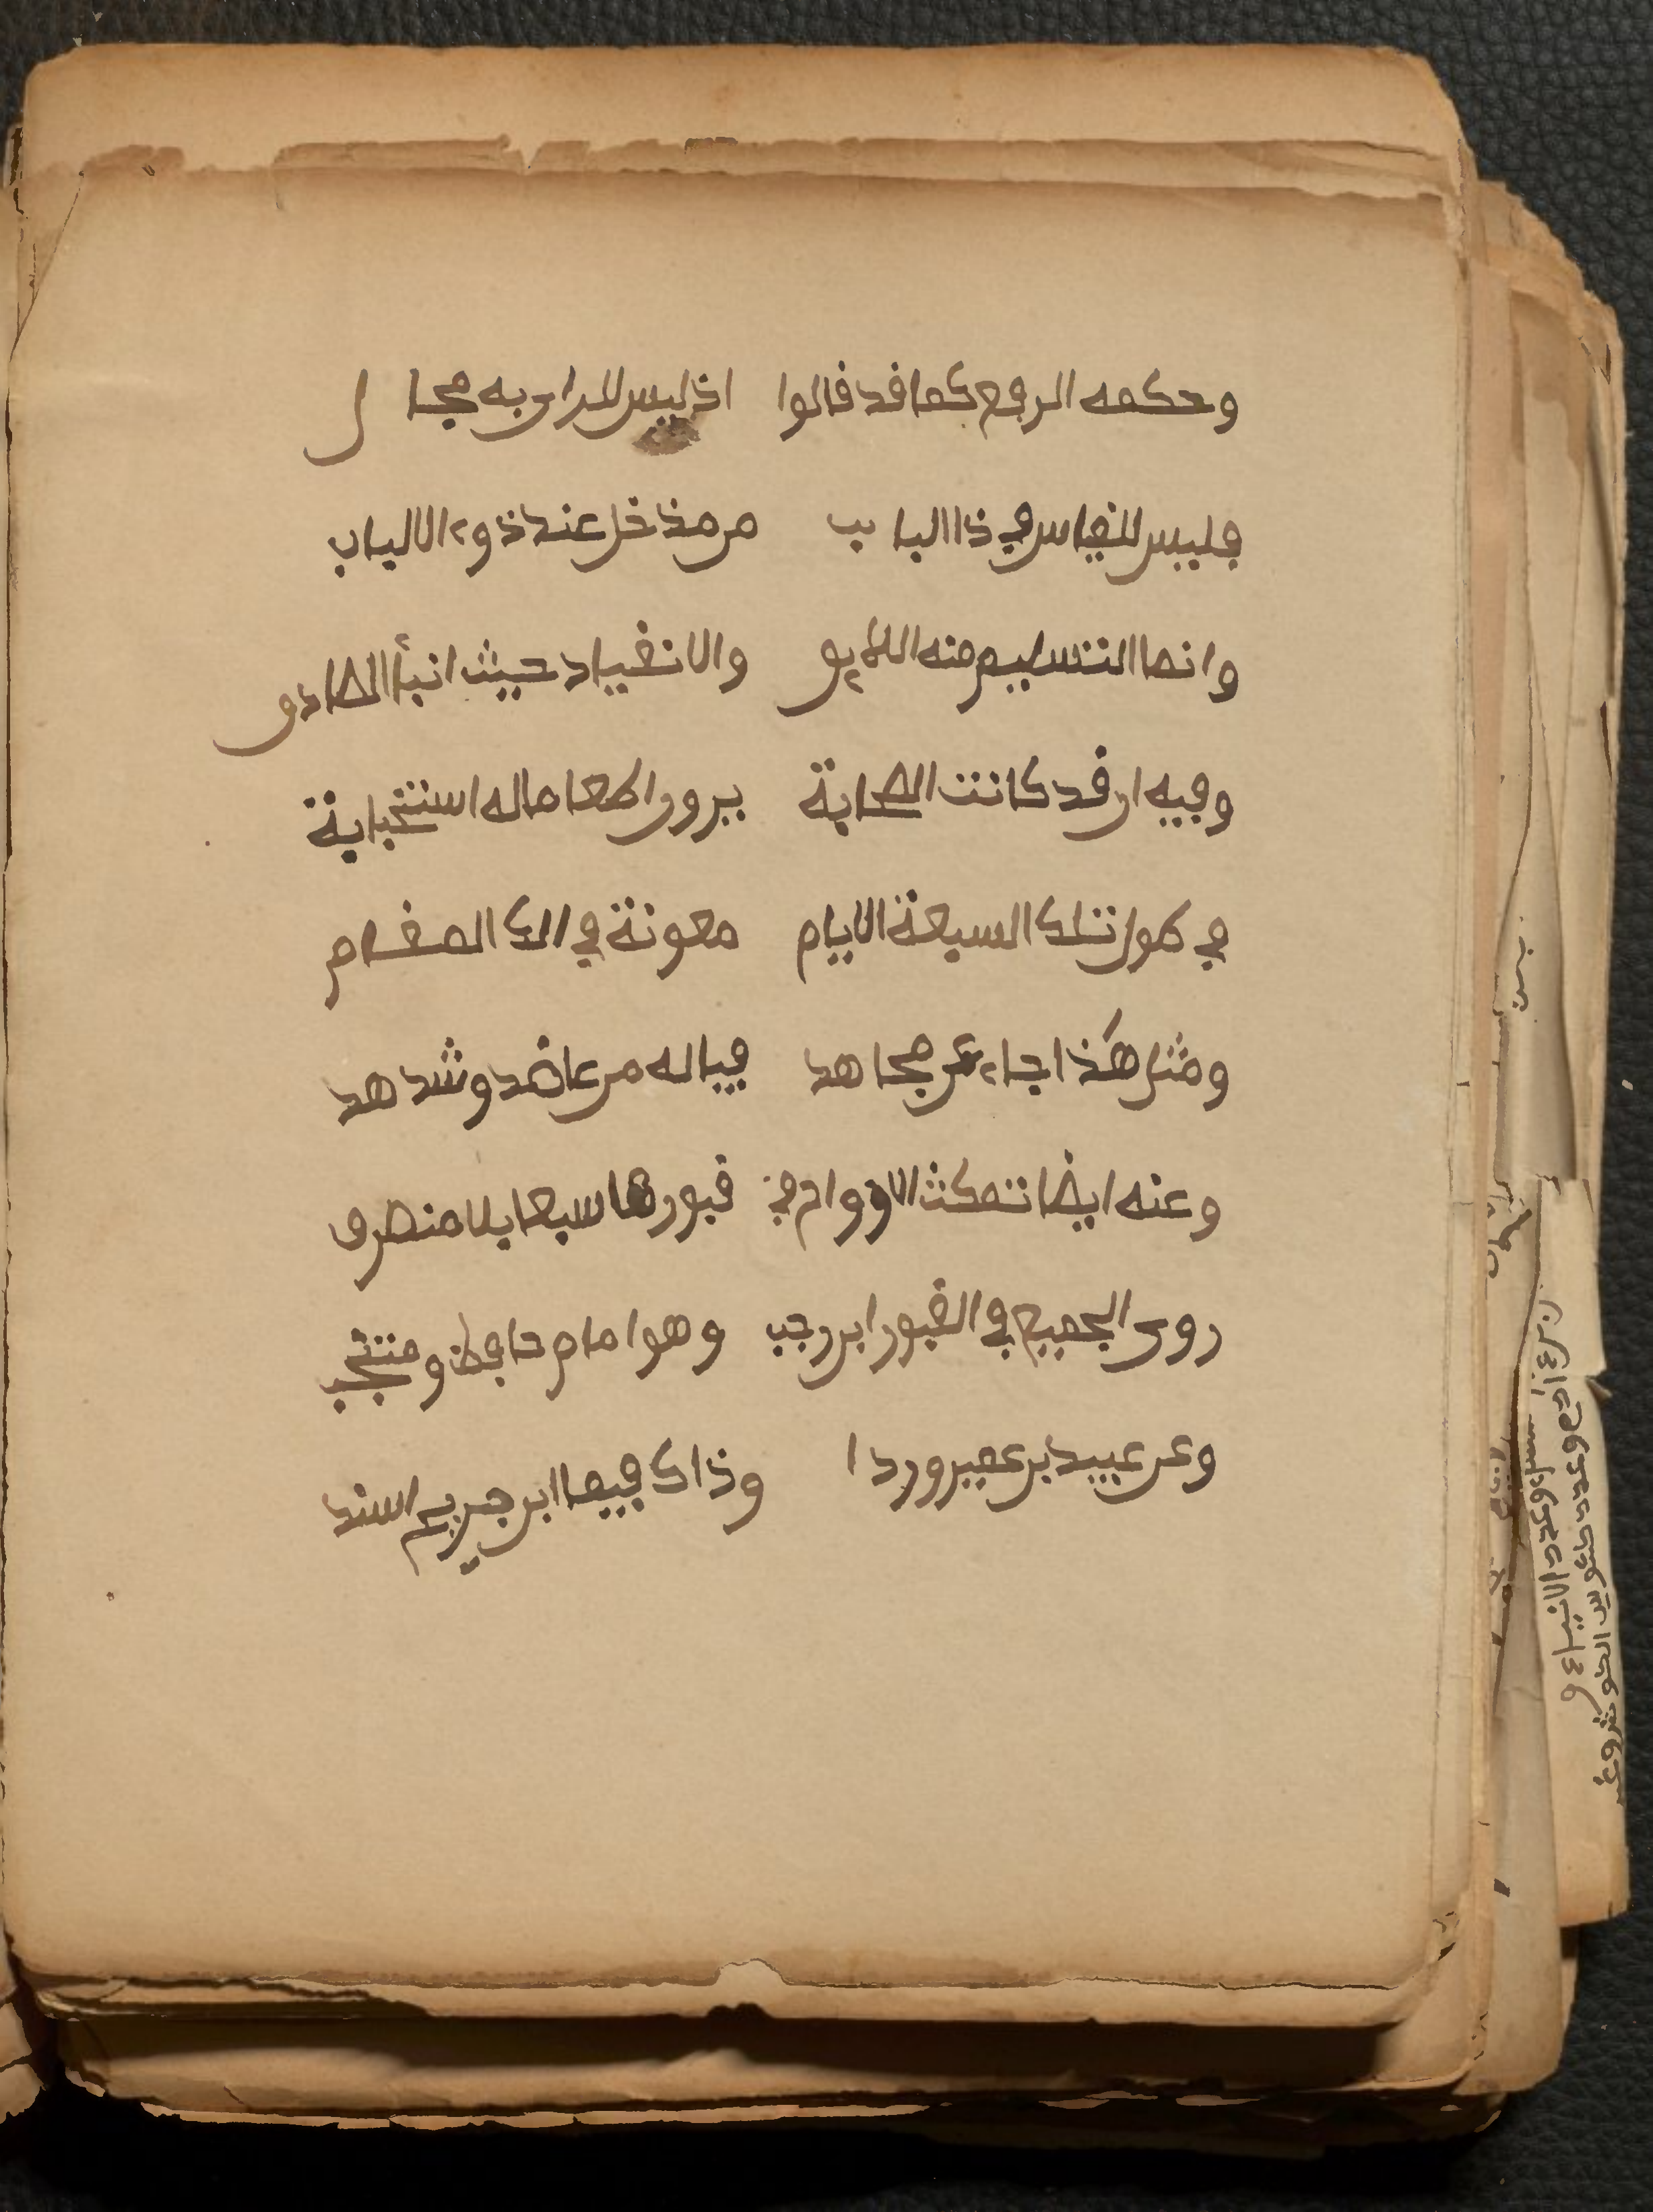 وحكمه الرفع كما قد قالوا اذ ليس للراى به مجال
فليس للقياس في ذا الباب من مدخل عند ذوي الالباب
وانما التسليم منه اللايق والانقياد حيث انبأ الصادق
وفيه ان قد كانت الصحابة يرون اطعاما له استحبابة
في طول تلك السبعة الايام معونة في ذلك المقام
ومثل هكذا جاء عن مجاهد فياله من عاضد وشاهد
وعنه ايضا تمكث الارواح في قبورها سبعا بلا منصرف
روى الجميع في القبور ابن رجب وهو امام حافظ ومنتجب
وعن عبيد بن عمير وردا وذاك فيما ابن جريج اسندا